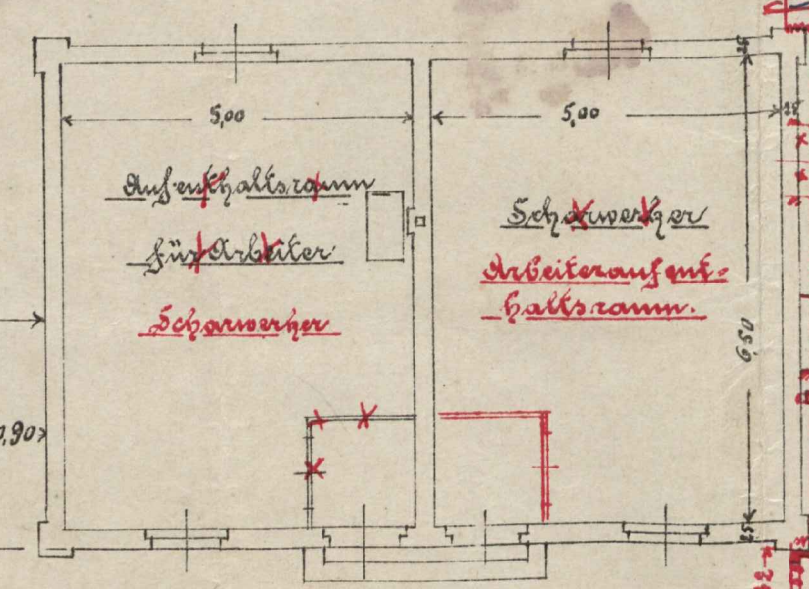 5,00
5,00
Aufenthaltsraum
für Arbeiter
Scharwerker
Scharwerker
Arbeiteraufent-
haltsraum.
6,50
0,90
25
25